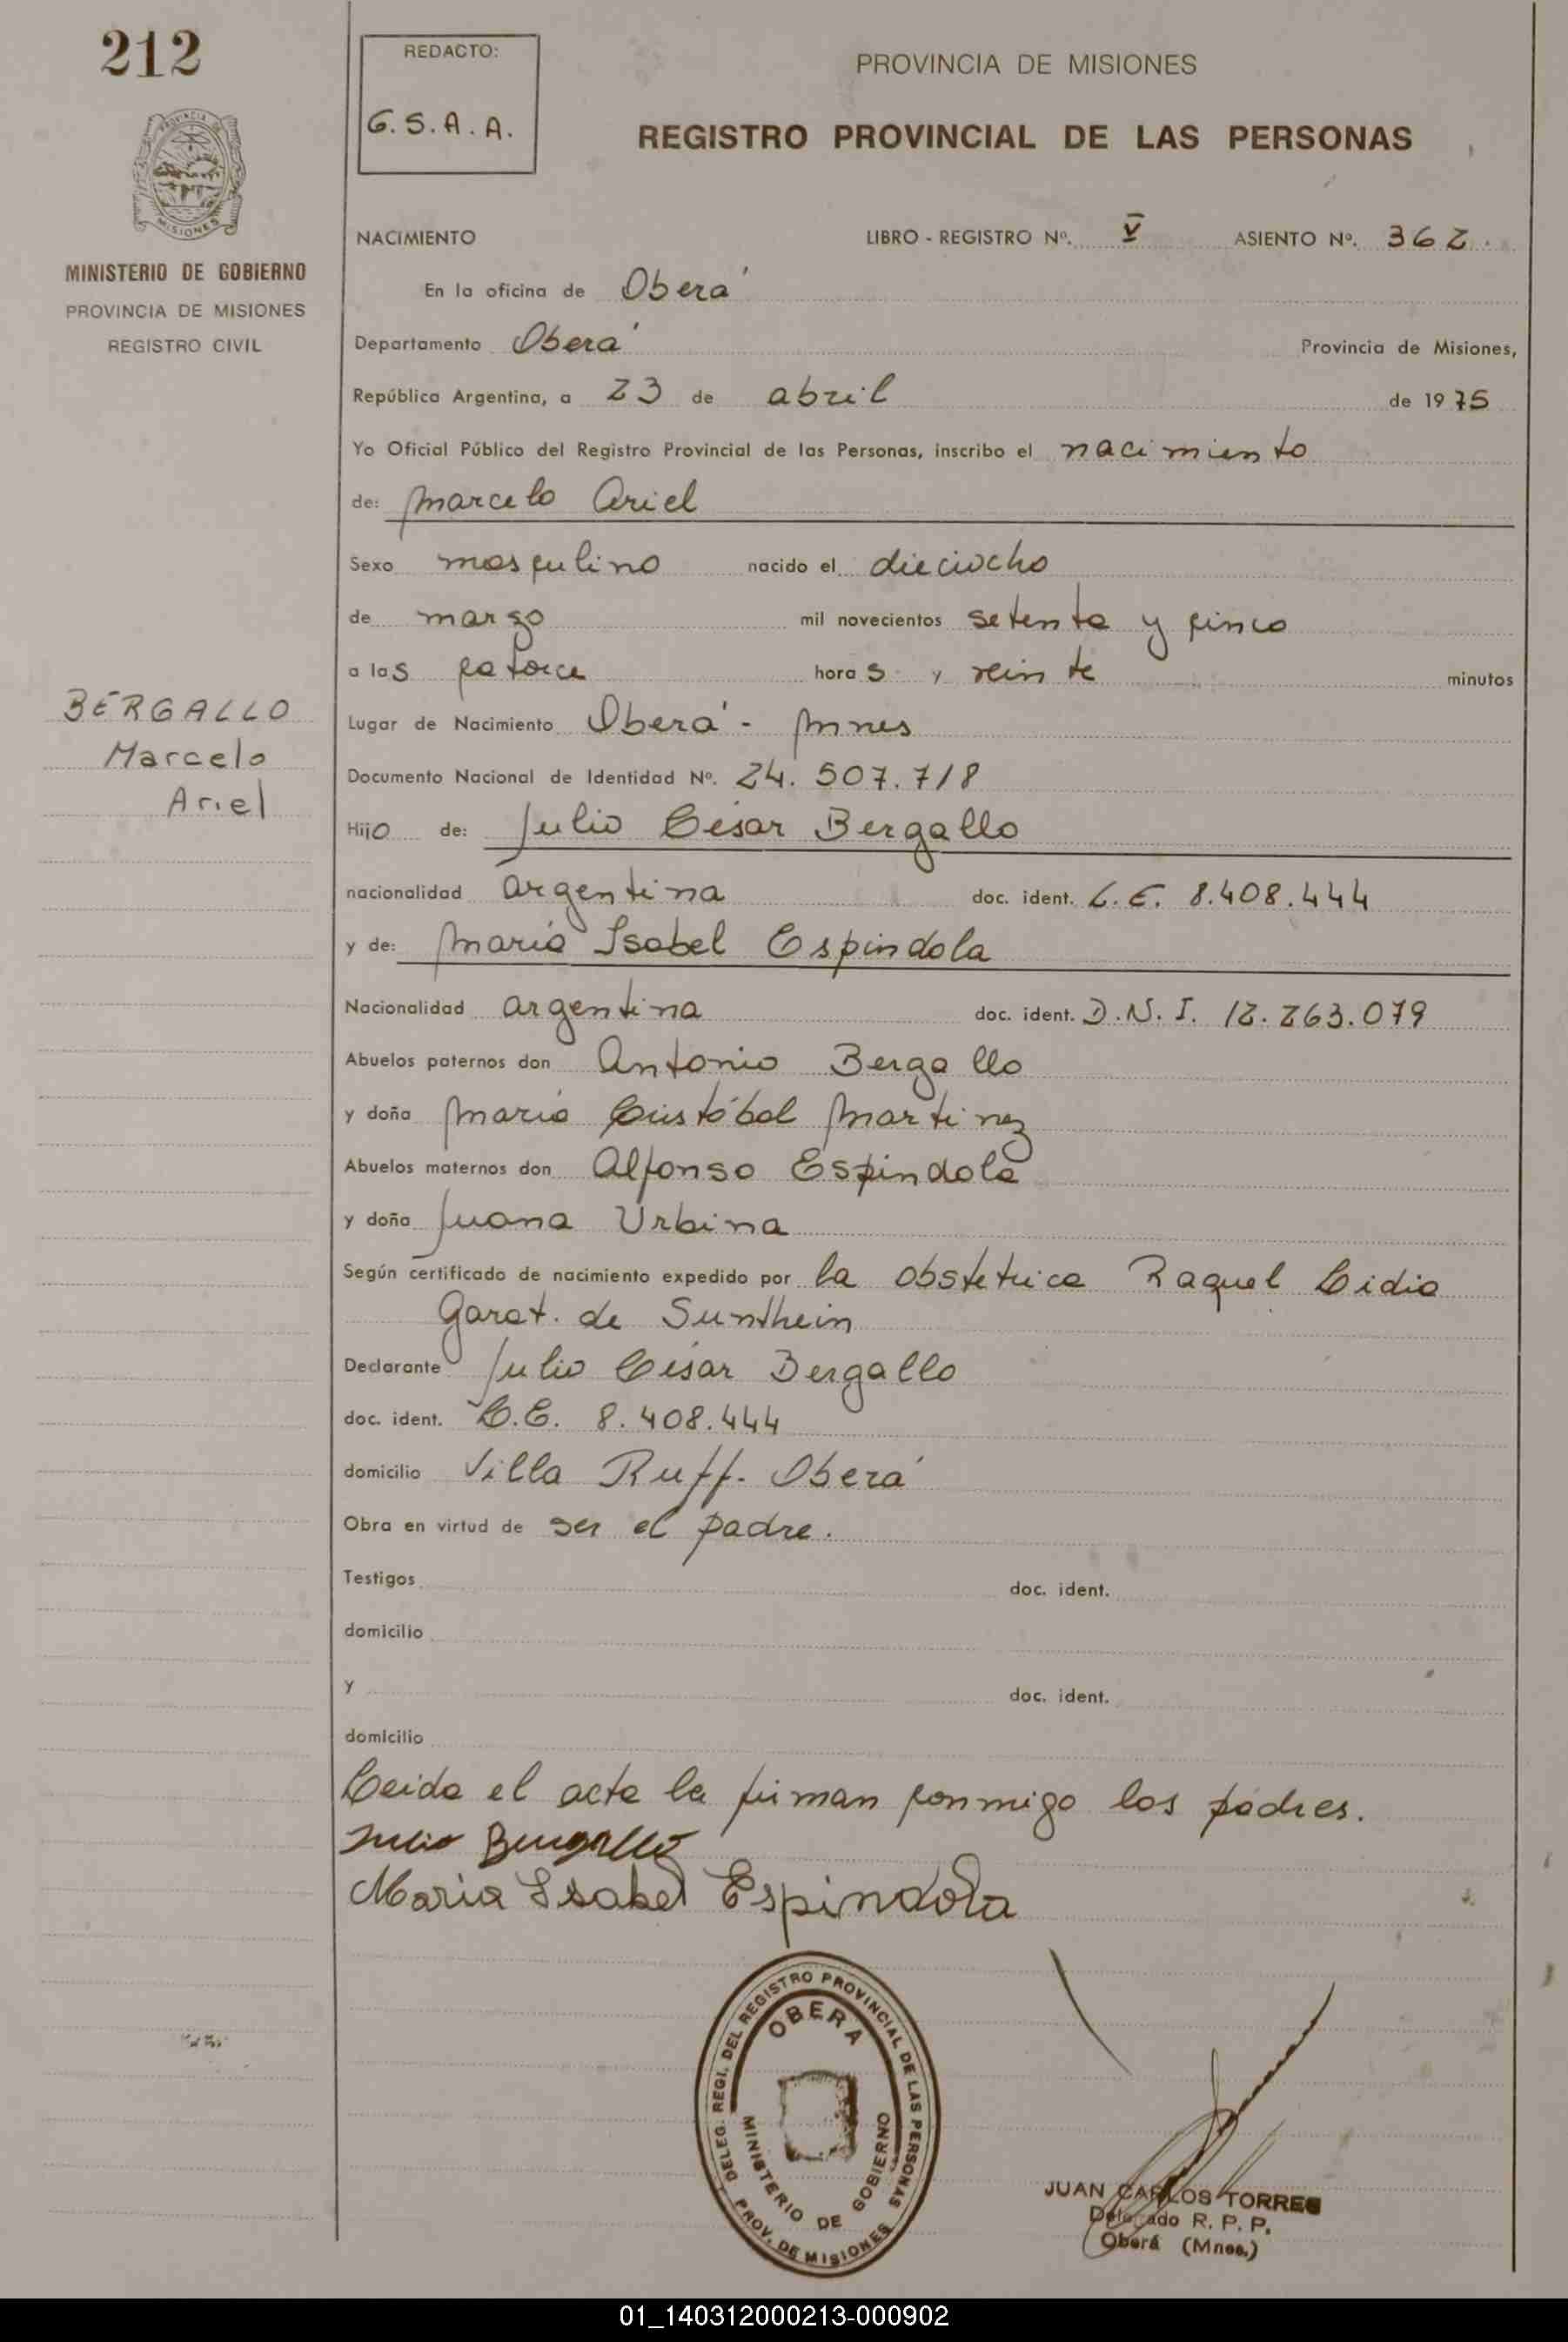 212
PROVINCIA DE
MISIONES
MINISTERIO DE GOBIERNO
PROVINCIA DE MISIONES
REGISTRO CIVIL
BERGALLO
Marcelo
Ariel
REDACTO:
G. S. A. A.
PROVINCIA DE MISIONES
REGISTRO PROVINCIAL DE LAS PERSONAS
NACIMIENTO LIBRO - REGISTRO Nº. V ASIENTO Nº. 362.
En la oficina de Oberá
Departamento Oberá Provincia de Misiones,
República Argentina, a 23 de abril de 1975
Yo Oficial Público del Registro Provincial de las Personas, inscribo el nacimiento
de: Marcelo Ariel
Sexo masculino nacido el dieciocho
de marzo mil novecientos setenta y cinco
a las catorce horas y veinte minutos
Lugar de Nacimiento Oberá - Mnes
Documento Nacional de Identidad Nº. 24.507.718
Hijo de: Julio César Bergallo
nacionalidad argentina doc. ident. L.E. 8.408.444
y de: María Isabel Espindola
Nacionalidad argentina doc. ident. D.N.I. 12.263.079
Abuelos paternos don Antonio Bergallo
y doña María Cristóbal Martinez
Abuelos maternos don Alfonso Espindola
y doña Juana Urbina
Según certificado de nacimiento expedido por la obstetrica Raquel Lidia
Garat. de Sunthein
Declarante Julio César Bergallo
doc. ident. L.E. 8.408.444
domicilio Villa Ruff. Oberá
Obra en virtud de ser el padre.
Testigos doc. ident.
domicilio
y doc. ident.
domicilio
Leida el acta la firman conmigo los padres.
Julio Bergallo
Maria Isabel Espindola
DELEG. REGI. DEL REGISTRO PROVINCIAL DE LAS PERSONAS
OBERA
MINISTERIO DE GOBIERNO
PROV. DE MISIONES
JUAN CARLOS TORRES
Delegado R. P. P.
Oberá (Mnes.)
01_140312000213-000902